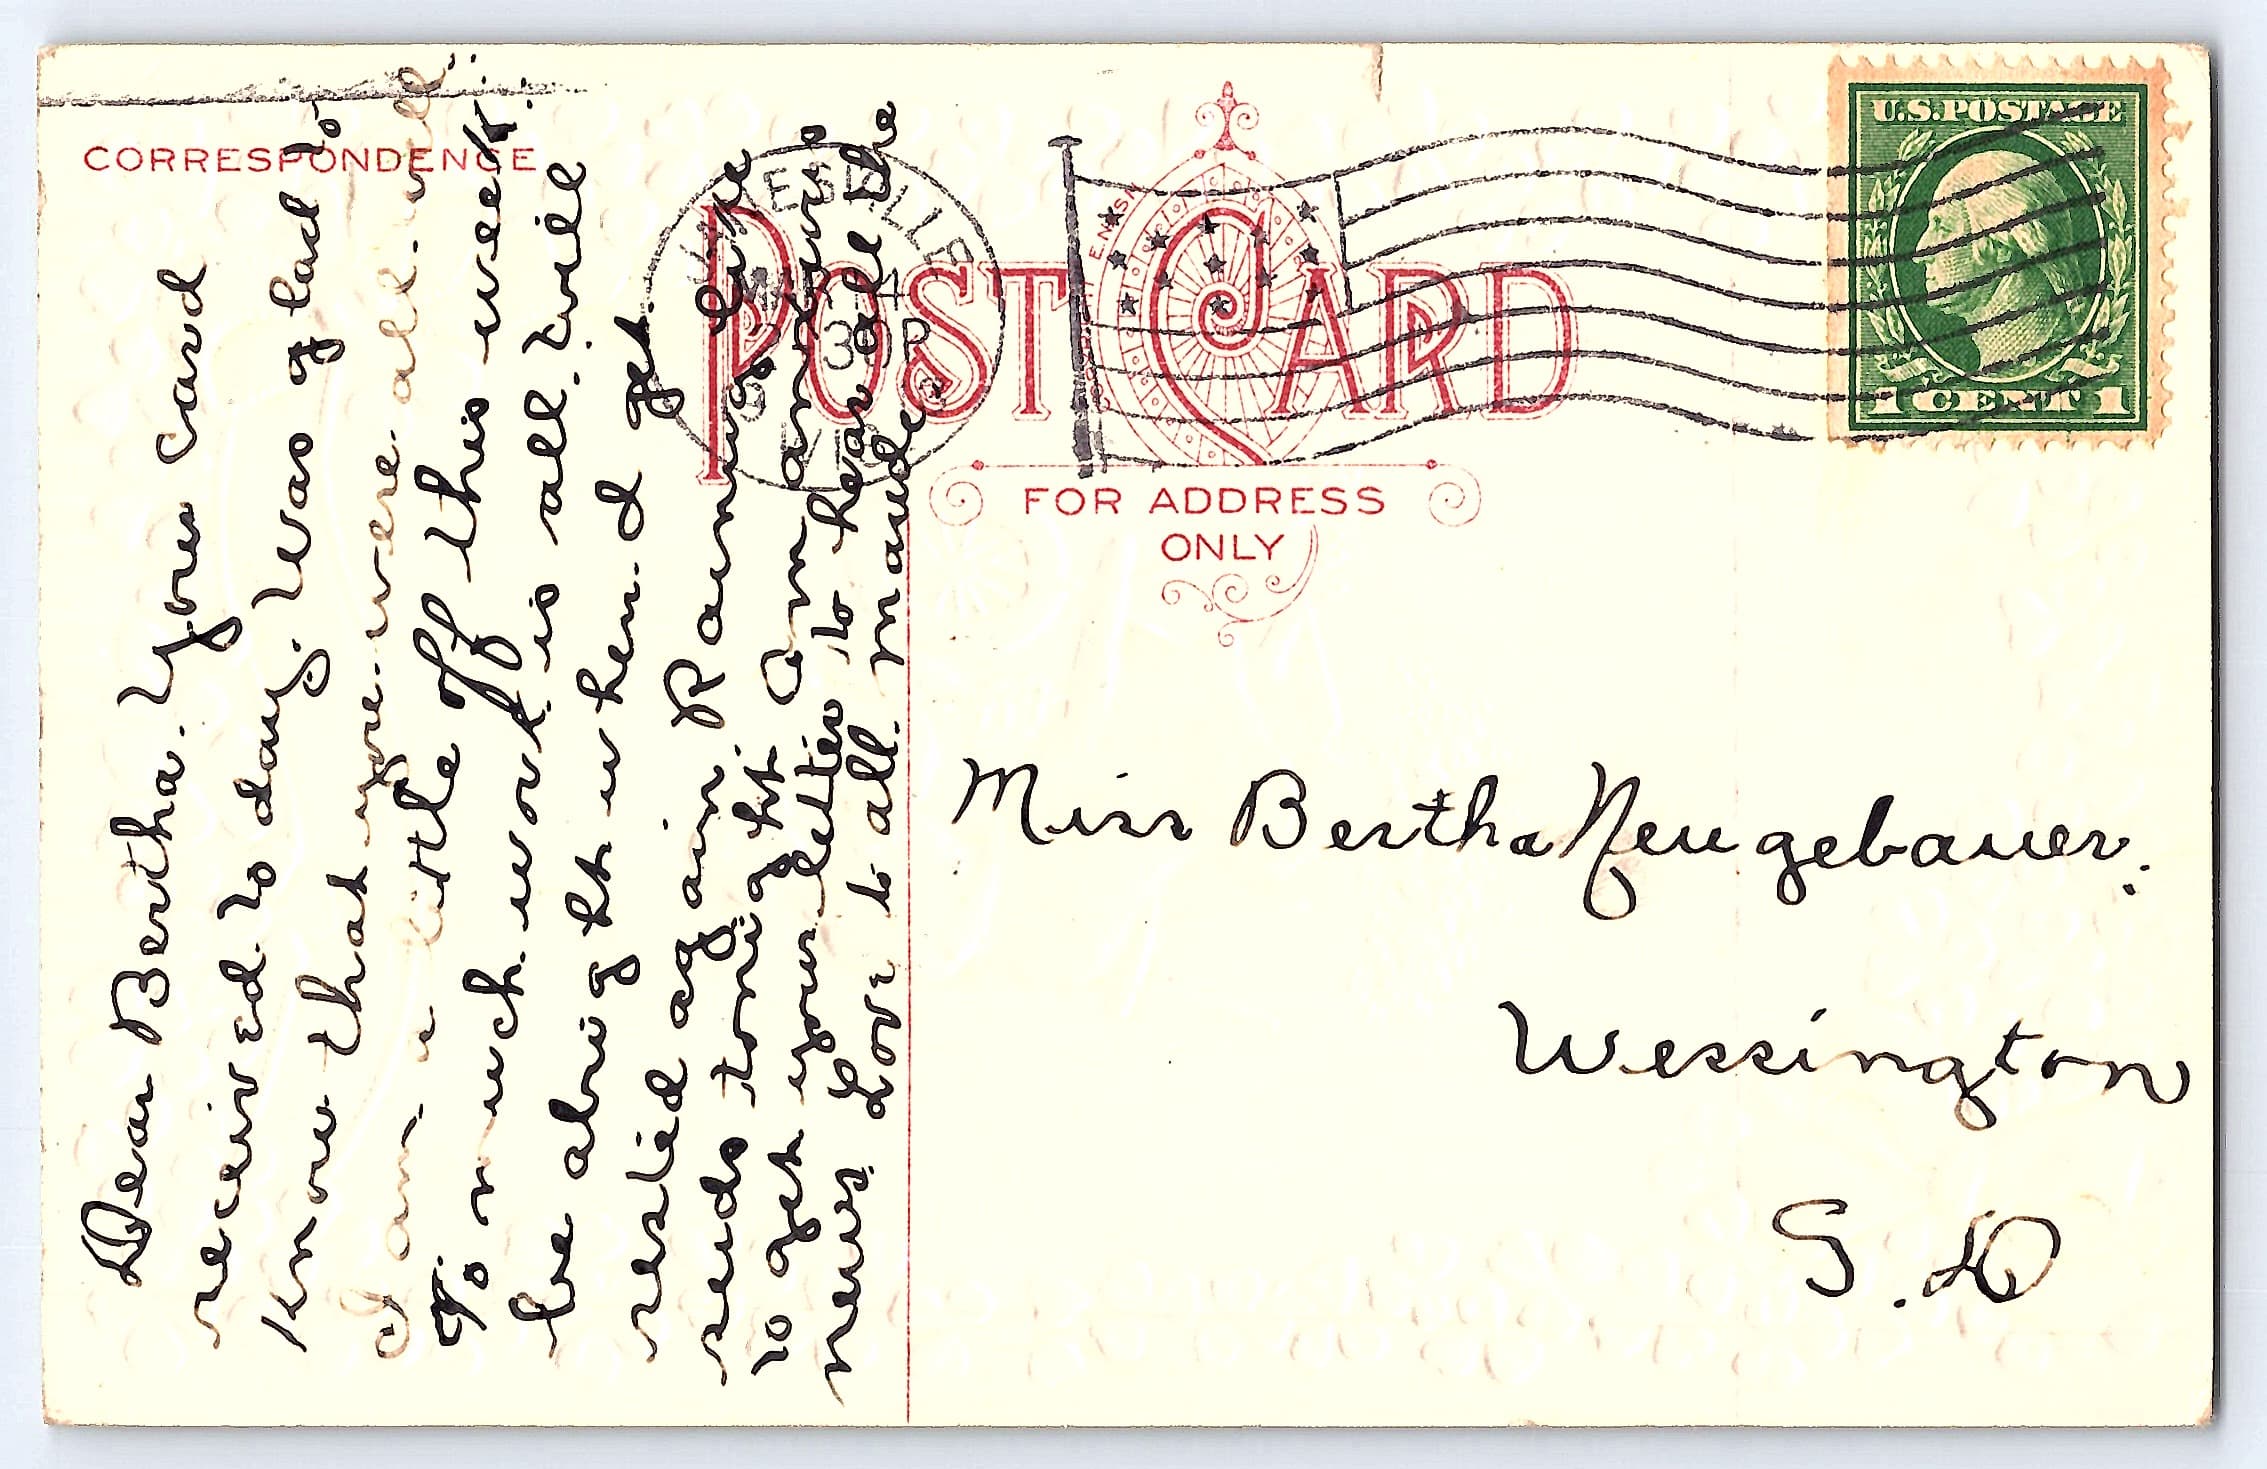 CORRESPONDENCE
POST CARD
FOR ADDRESS
ONLY
U.S. POSTAGE
1 CENT 1
WIS.
Dear Bertha. Your card
received to day. Was glad to
know that you were all well
I am a little off this week.
To much work is all. Will
be alright when I get
rested again. Raymond
sends tonight. Am anxious
to get your letter to hear all the
news. Love to all. Maude
Miss Bertha Neugebauer.
Wessington
S.D